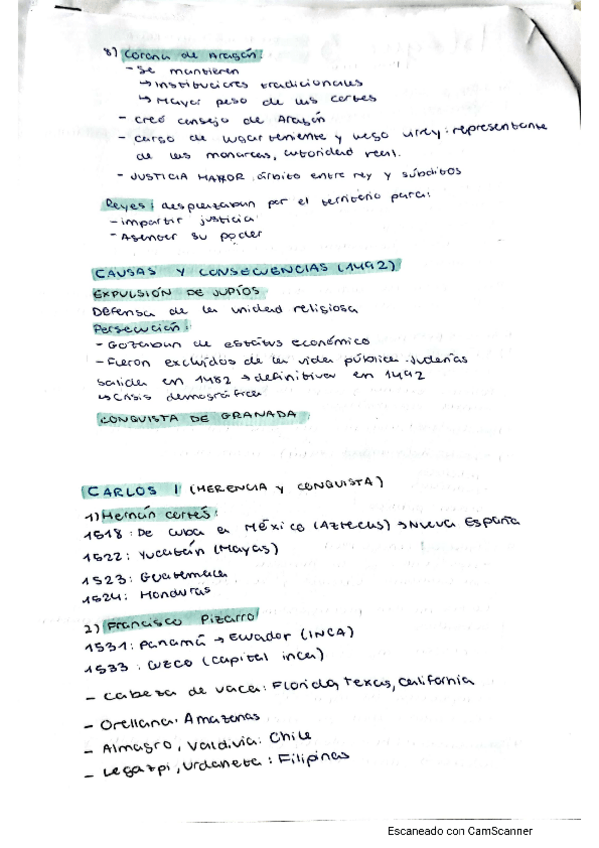 8) Corona de Aragón:
- Se mantienen
↳ Instituciones tradicionales
↳ Mayor peso de las cortes
- Creó consejo de Aragón
- Cargo de lugarteniente y luego virrey: representante
de los monarcas, autoridad real.
- JUSTICIA MAYOR: árbitro entre rey y súbditos
Reyes: desplazaban por el territorio para:
- impartir justicia
- Asentar su poder
CAUSAS Y CONSECUENCIAS (1492)
EXPULSIÓN DE JUDÍOS
Defensa de la unidad religiosa
Persecución:
- Gozaban de estatus económico
- Fueron excluidos de la vida pública. Juderías
salida en 1482 → definitiva en 1492
↳ Crisis demográfica
CONQUISTA DE GRANADA
CARLOS I (HERENCIA y CONQUISTA)
1) Hernán Cortés:
1518: De Cuba a México (Aztecas) → Nueva España
1522: Yucatán (Mayas)
1523: Guatemala
1524: Honduras
2) Francisco Pizarro
1531: Panamá → Ecuador (INCA)
1533: Cuzco (capital inca)
- Cabeza de vaca: Florida, Texas, California
- Orellana: Amazonas
- Almagro, Valdivia: Chile
- Legazpi, Urdaneta: Filipinas
Escaneado con CamScanner